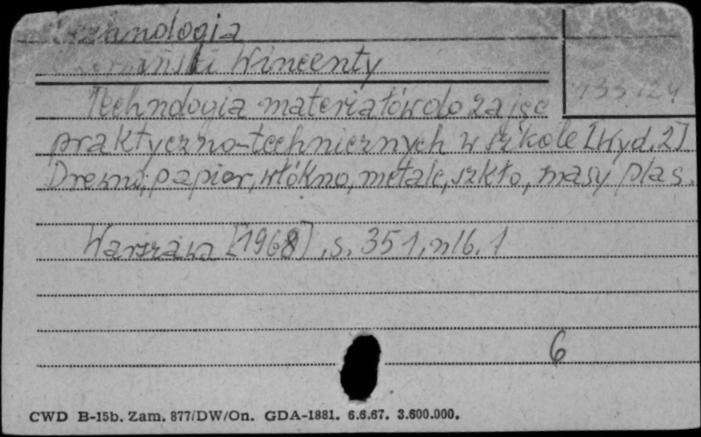 Wincenty
Technologia materiałów do zajęć
praktyczno-technicznych w szkole [Wyd. 2]
Drewno, papier, włókno, metale, szkło, masy plas.
Warszawa [1968], s. 351, nlb. 1
6
CWD B-15b. Zam. 877/DW/On. GDA-1881. 6.6.67. 3.600.000.